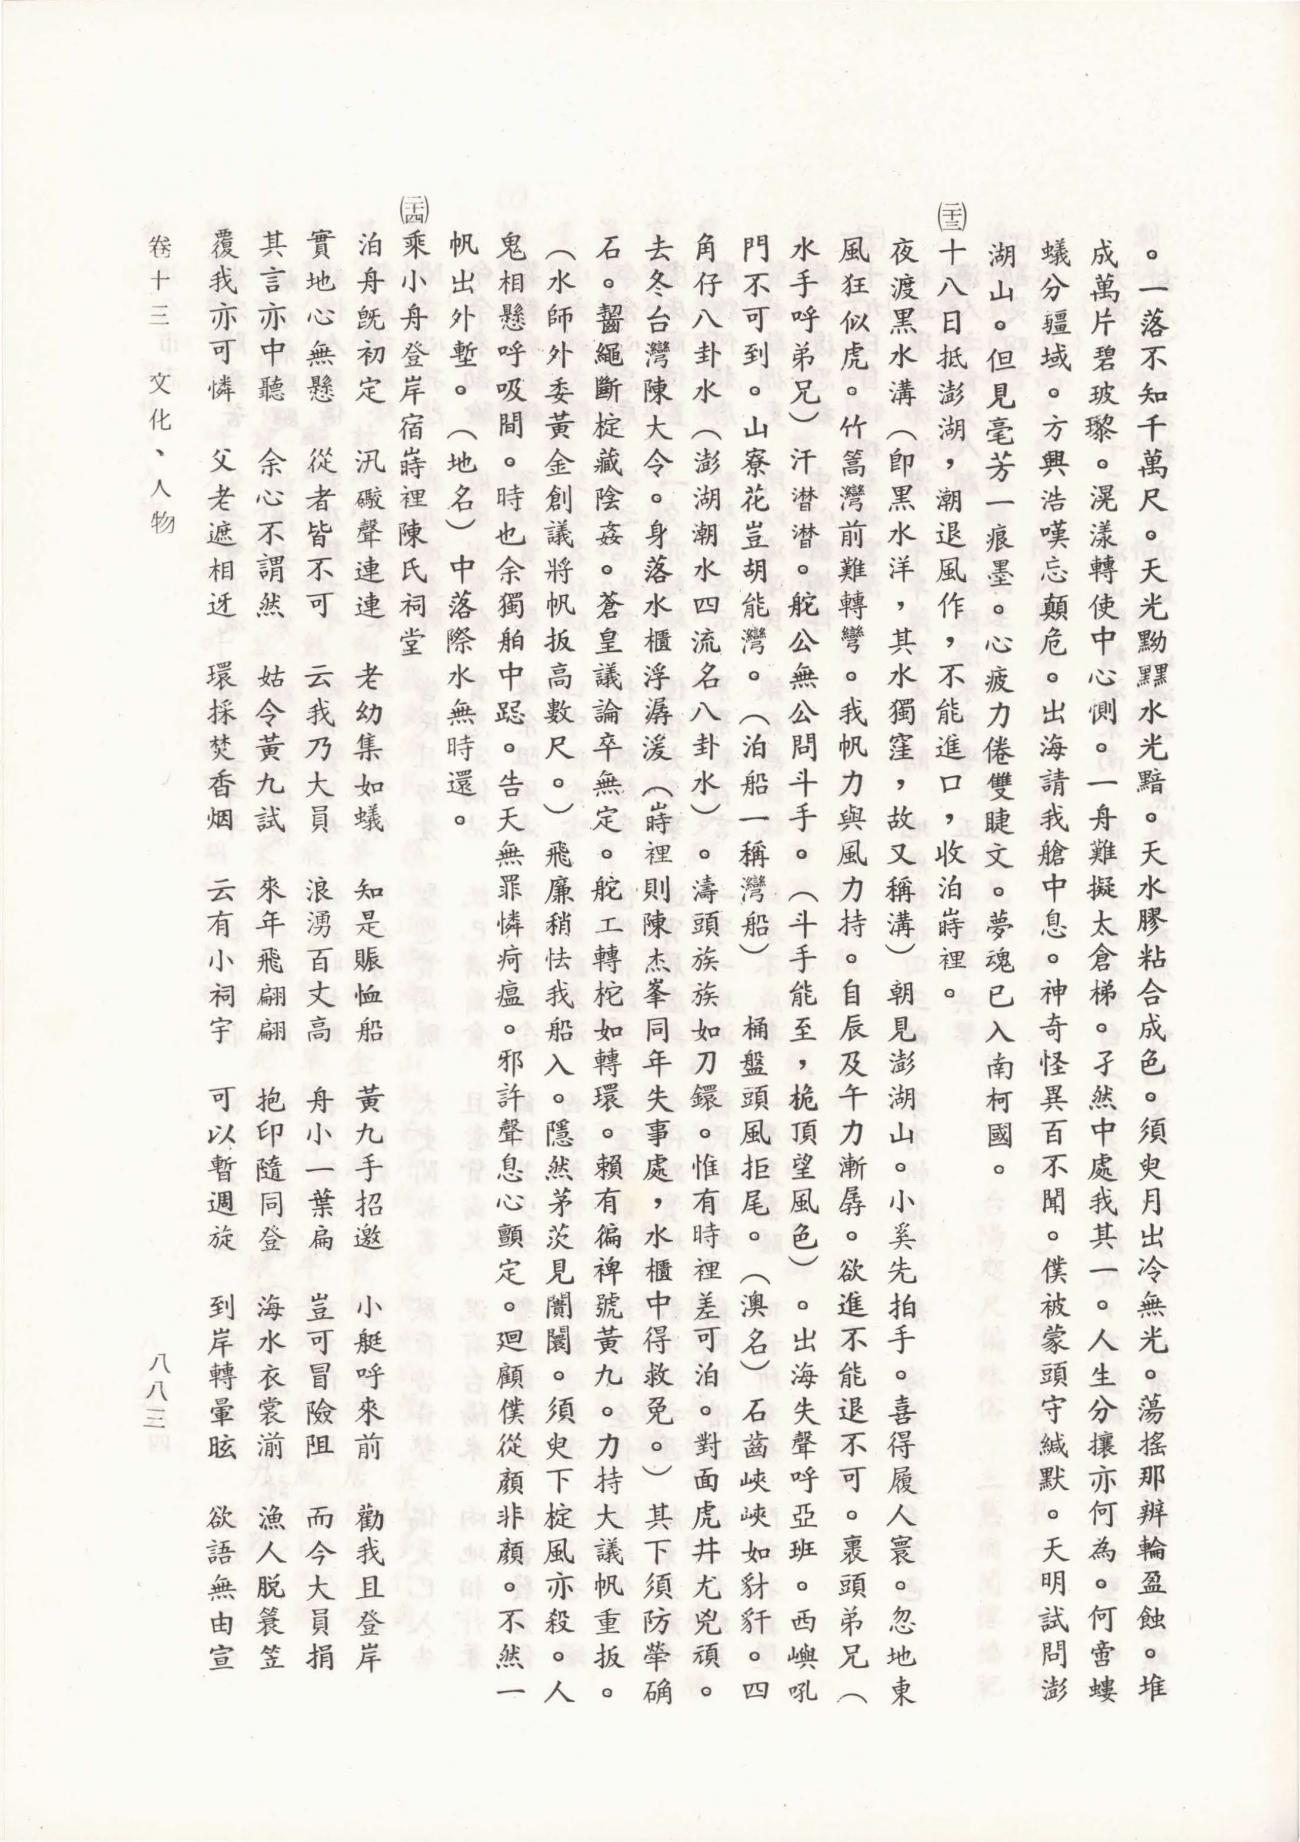 。一落不知千萬尺。天光黝黮水光黯。天水膠粘合成色。須臾月出冷無光。蕩搖那辨輪盈蝕。堆
成萬片碧玻瓈。滉漾轉使中心惻。一舟難擬太倉梯。孑然中處我其一。人生分攘亦何為。何啻螻
蟻分疆域。方興浩嘆忘顛危。出海請我艙中息。神奇怪異百不聞。僕被蒙頭守緘默。天明試問澎
湖山。但見毫芳一痕墨。心疲力倦雙睫文。夢魂已入南柯國。
㈡㈢十八日抵澎湖，潮退風作，不能進口，收泊嵵裡。
夜渡黑水溝（卽黑水洋，其水獨窪，故又稱溝）朝見澎湖山。小奚先拍手。喜得履人寰。忽地東
風狂似虎。竹篙灣前難轉彎。我帆力與風力持。自辰及午力漸孱。欲進不能退不可。裹頭弟兄（
水手呼弟兄）汗潸潸。舵公無公問斗手。（斗手能至，桅頂望風色）。出海失聲呼亞班。西嶼吼
門不可到。山寮花豈胡能灣。（泊船一稱灣船）　桶盤頭風拒尾。（澳名）石齒峽峽如豺豻。四
角仔八卦水（澎湖潮水四流名八卦水）。濤頭族族如刀鐶。惟有時裡差可泊。對面虎井尤兇頑。
去冬台灣陳大令。身落水櫃浮潺湲（嵵裡則陳杰峯同年失事處，水櫃中得救免。）其下須防犖确
石。齧繩斷椗藏陰姦。蒼皇議論卒無定。舵工轉柁如轉環。賴有徧裨號黃九。力持大議帆重扳。
（水師外委黃金創議將帆扳高數尺。）飛廉稍怯我船入。隱然茅茨見闤闠。須臾下椗風亦殺。人
鬼相懸呼吸間。時也余獨舶中跽。告天無罪憐疴瘟。邪許聲息心顫定。迴顧僕從顏非顏。不然一
帆出外塹。（地名）中落際水無時還。
㈡㈣乘小舟登岸宿嵵裡陳氏祠堂
泊舟旣初定　汛礮聲連連　老幼集如蟻　知是賑恤船　黃九手招邀　小艇呼來前　勸我且登岸
實地心無懸　從者皆不可　云我乃大員　浪湧百丈高　舟小一葉扁　豈可冒險阻　而今大員捐
其言亦中聽　余心不謂然　姑令黃九試　來年飛翩翩　抱印隨同登　海水衣裳湔　漁人脫簑笠
覆我亦可憐　父老遮相迓　環採焚香烟　云有小祠宇　可以暫週旋　到岸轉暈眩　欲語無由宣
卷十三　文化、人物
八八三